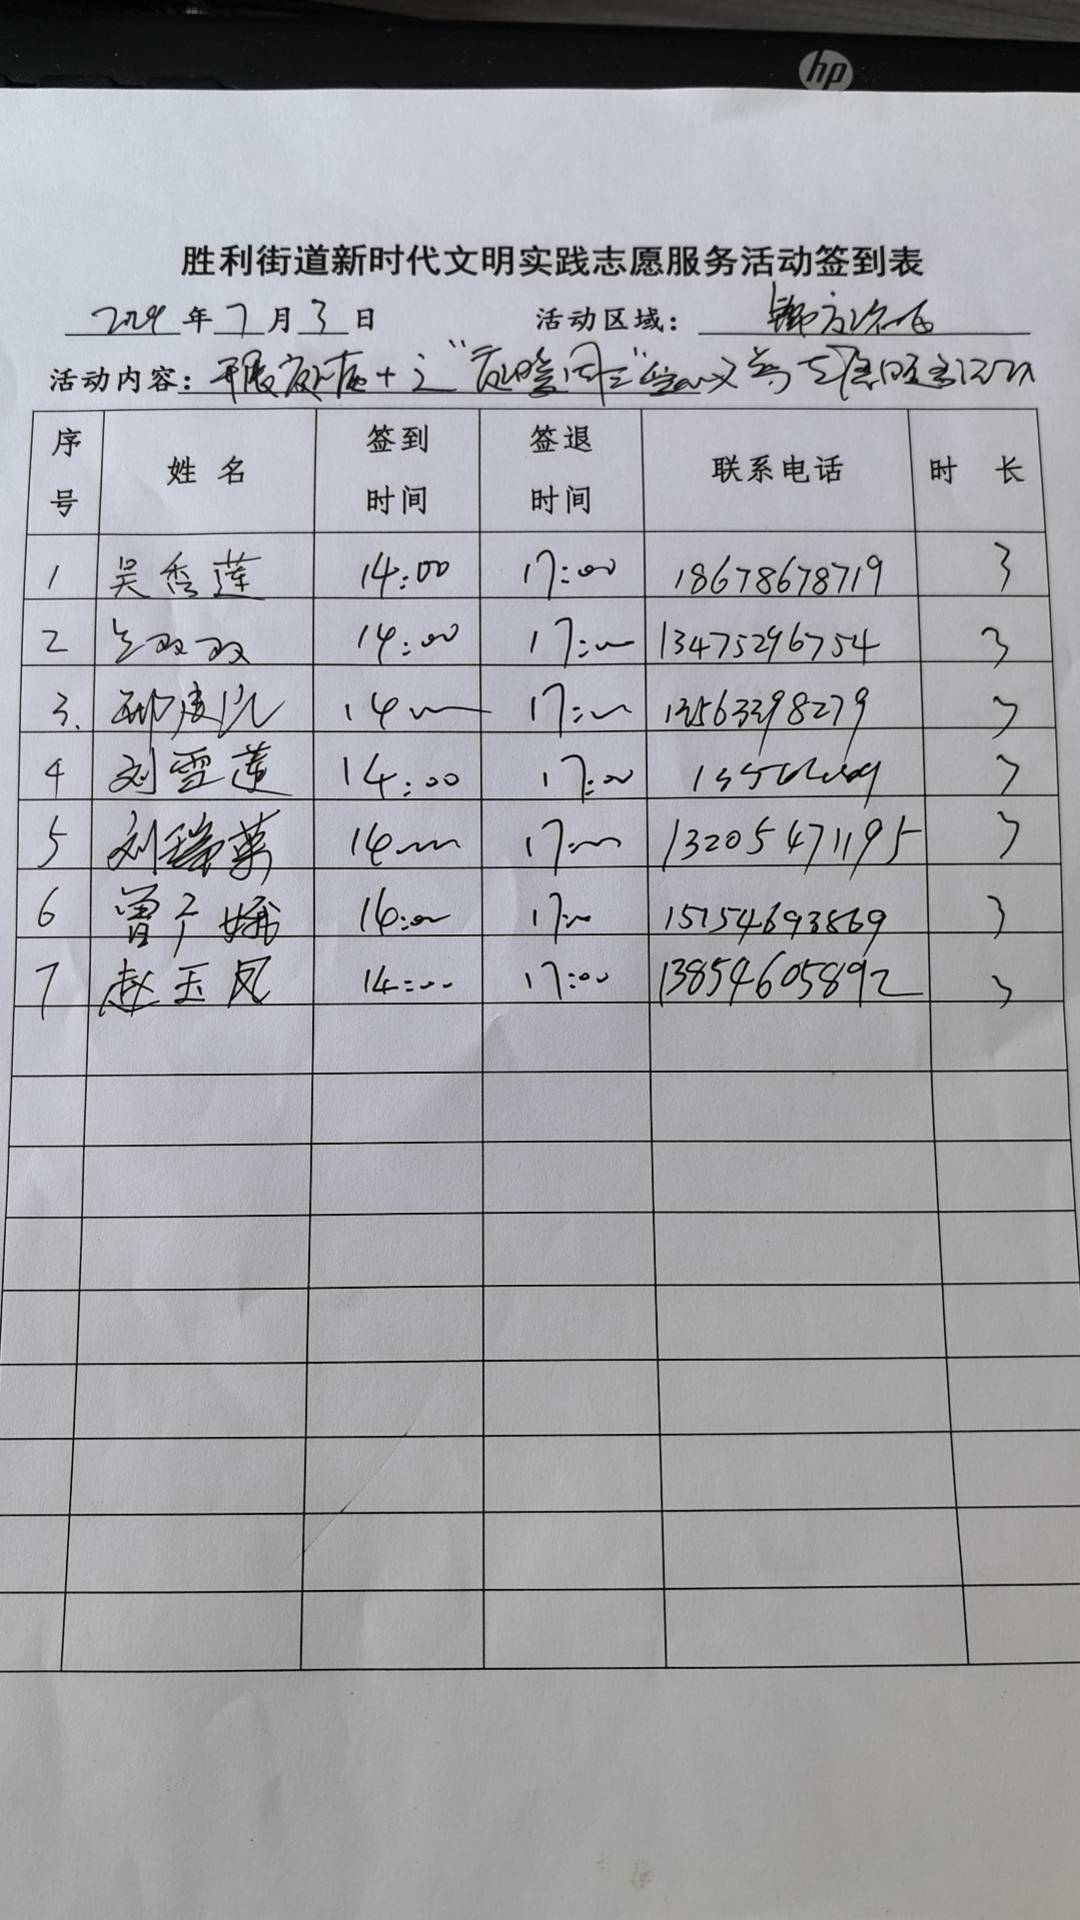 hp
胜利街道新时代文明实践志愿服务活动签到表
2024年7月3日 活动区域：
活动内容：开展 + 之
序号 姓名 签到时间 签退时间 联系电话 时长
1 吴秀莲 14:00 17:00 18678678719 3
2 双双 14:00 17:00 13475296754 3
3. 14 17: 13563398279 3
4 刘雪莲 14:00 17:00 3
5 刘瑞英 14 17: 13205471195 3
6 曾广娥 14:00 17:00 15154693869 3
7 赵玉凤 14:00 17:00 13854605892 3